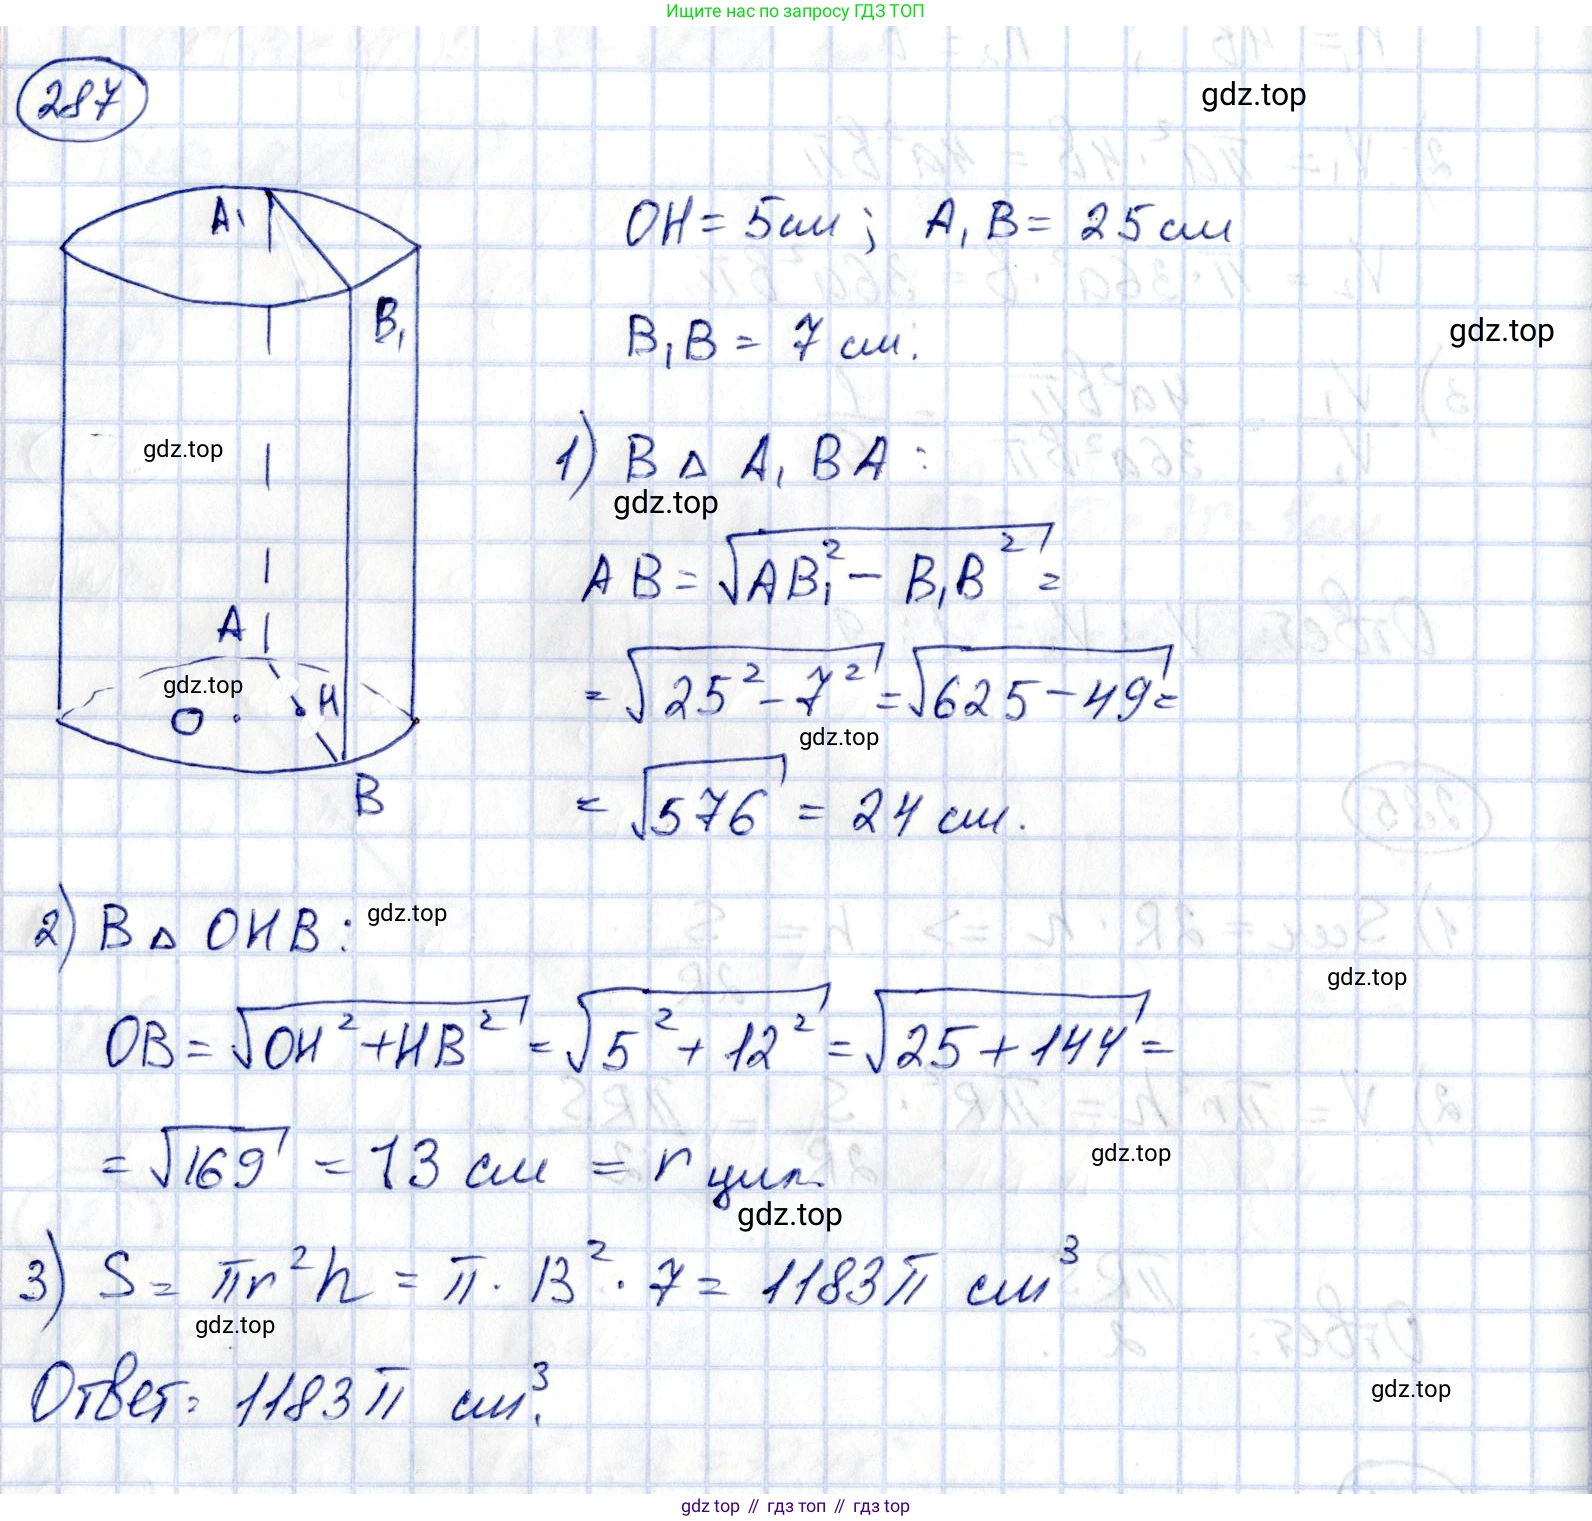 Ищите нас по запросу ГДЗ ТОП
287
gdz.top
A₁
OH = 5 см ; A₁B = 25 см
B₁
B₁B = 7 см.
gdz.top
gdz.top
1) В △ A₁BA :
gdz.top
AB = √(AB₁² − B₁B²) =
A
= √(25² − 7²) = √(625 − 49) =
gdz.top
O
H
gdz.top
B
= √576 = 24 см.
2) В △ OHB :
gdz.top
gdz.top
OB = √(OH² + HB²) = √(5² + 12²) = √(25 + 144) =
= √169 = 13 см = r цил.
gdz.top
gdz.top
3) S = πr²h = π · 13² · 7 = 1183π см³
gdz.top
Ответ: 1183π см³.
gdz.top
gdz top // гдз топ // гдз top